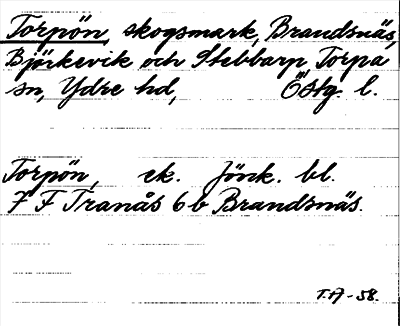 Torpön, skogsmark, Brandsnäs,
Björkevik och Stebbarp Torpa
sn, Ydre hd, Östg. l.
Torpön, ek. Jönk. bl.
7 F Tranås 6 b Brandsnäs.
T.A-58.